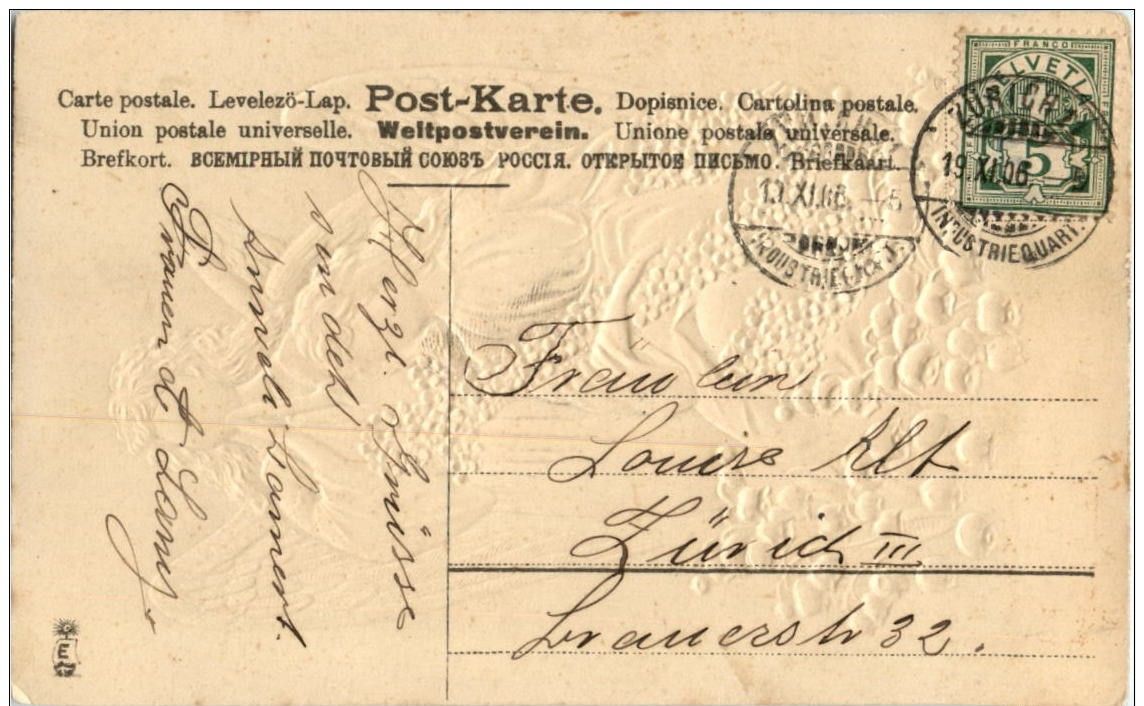 Carte postale. Levelező-Lap. Post-Karte. Dopisnice. Cartolina postale.
Union postale universelle. Weltpostverein. Unione postale universale.
Brefkort. ВСЕМІРНЫЙ ПОЧТОВЫЙ СОЮЗЪ РОССІЯ. ОТКРЫТОЕ ПИСЬМО. Briefkaart.
FRANCO
HELVETIA
5
ZÜRICH
19.XI.06
INDUSTRIEQUART.
19.XI.06. 5
Herzl. Grüsse
sendet
Fräulein
Louise Alt
Zürich III
Brauerstr 32.
E